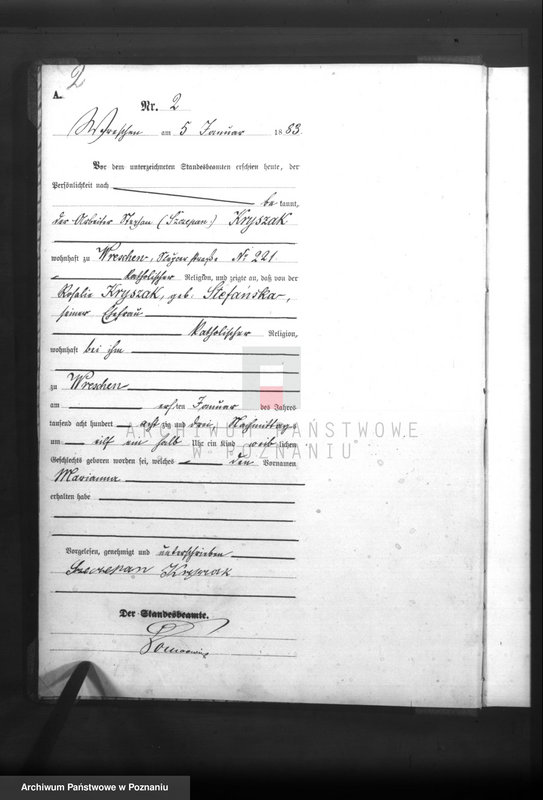 2
A.
Nr. 2
Wreschen am 5 Januar 1883.
Vor dem unterzeichneten Standesbeamten erschien heute, der
Persönlichkeit nach
be kannt,
der Arbeiter Stephan (Szczepan) Kryszak
wohnhaft zu Wreschen, straße No 221
katholischer Religion, und zeigte an, daß von der
Rosalie Kryszak, geb. Stefańska,
seiner Ehefrau
katholischer Religion,
wohnhaft bei ihm
zu Wreschen
am ersten Januar des Jahres
tausend acht hundert acht zig und drei, Nachmittags
um elf ein halb Uhr ein Kind weib lichen
Geschlechts geboren worden sei, welches den Vornamen
Marianna
erhalten habe
Vorgelesen, genehmigt und unterschrieben
Szczepan Kryszak
Der Standesbeamte.
ARCHIWUM PAŃSTWOWE
W POZNANIU
Archiwum Państwowe w Poznaniu